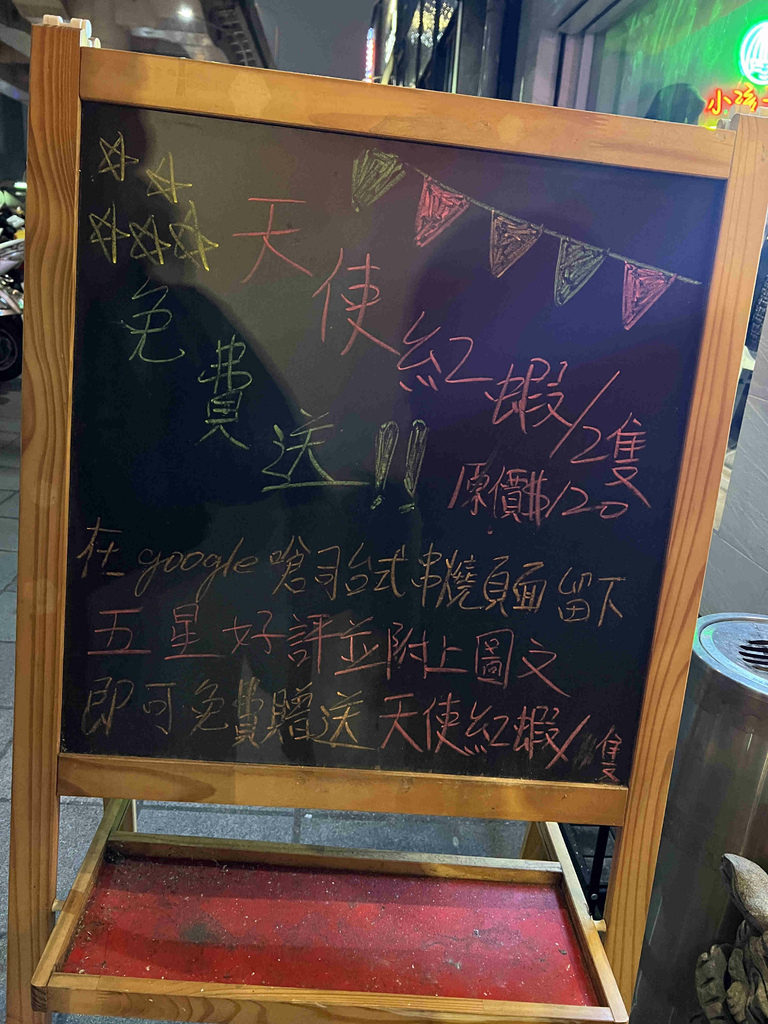 天使紅蝦/2隻
免費送!!
原價$120
在google嗆司台式串燒頁面留下
五星好評並附上圖文
即可免費贈送天使紅蝦/隻
小孩